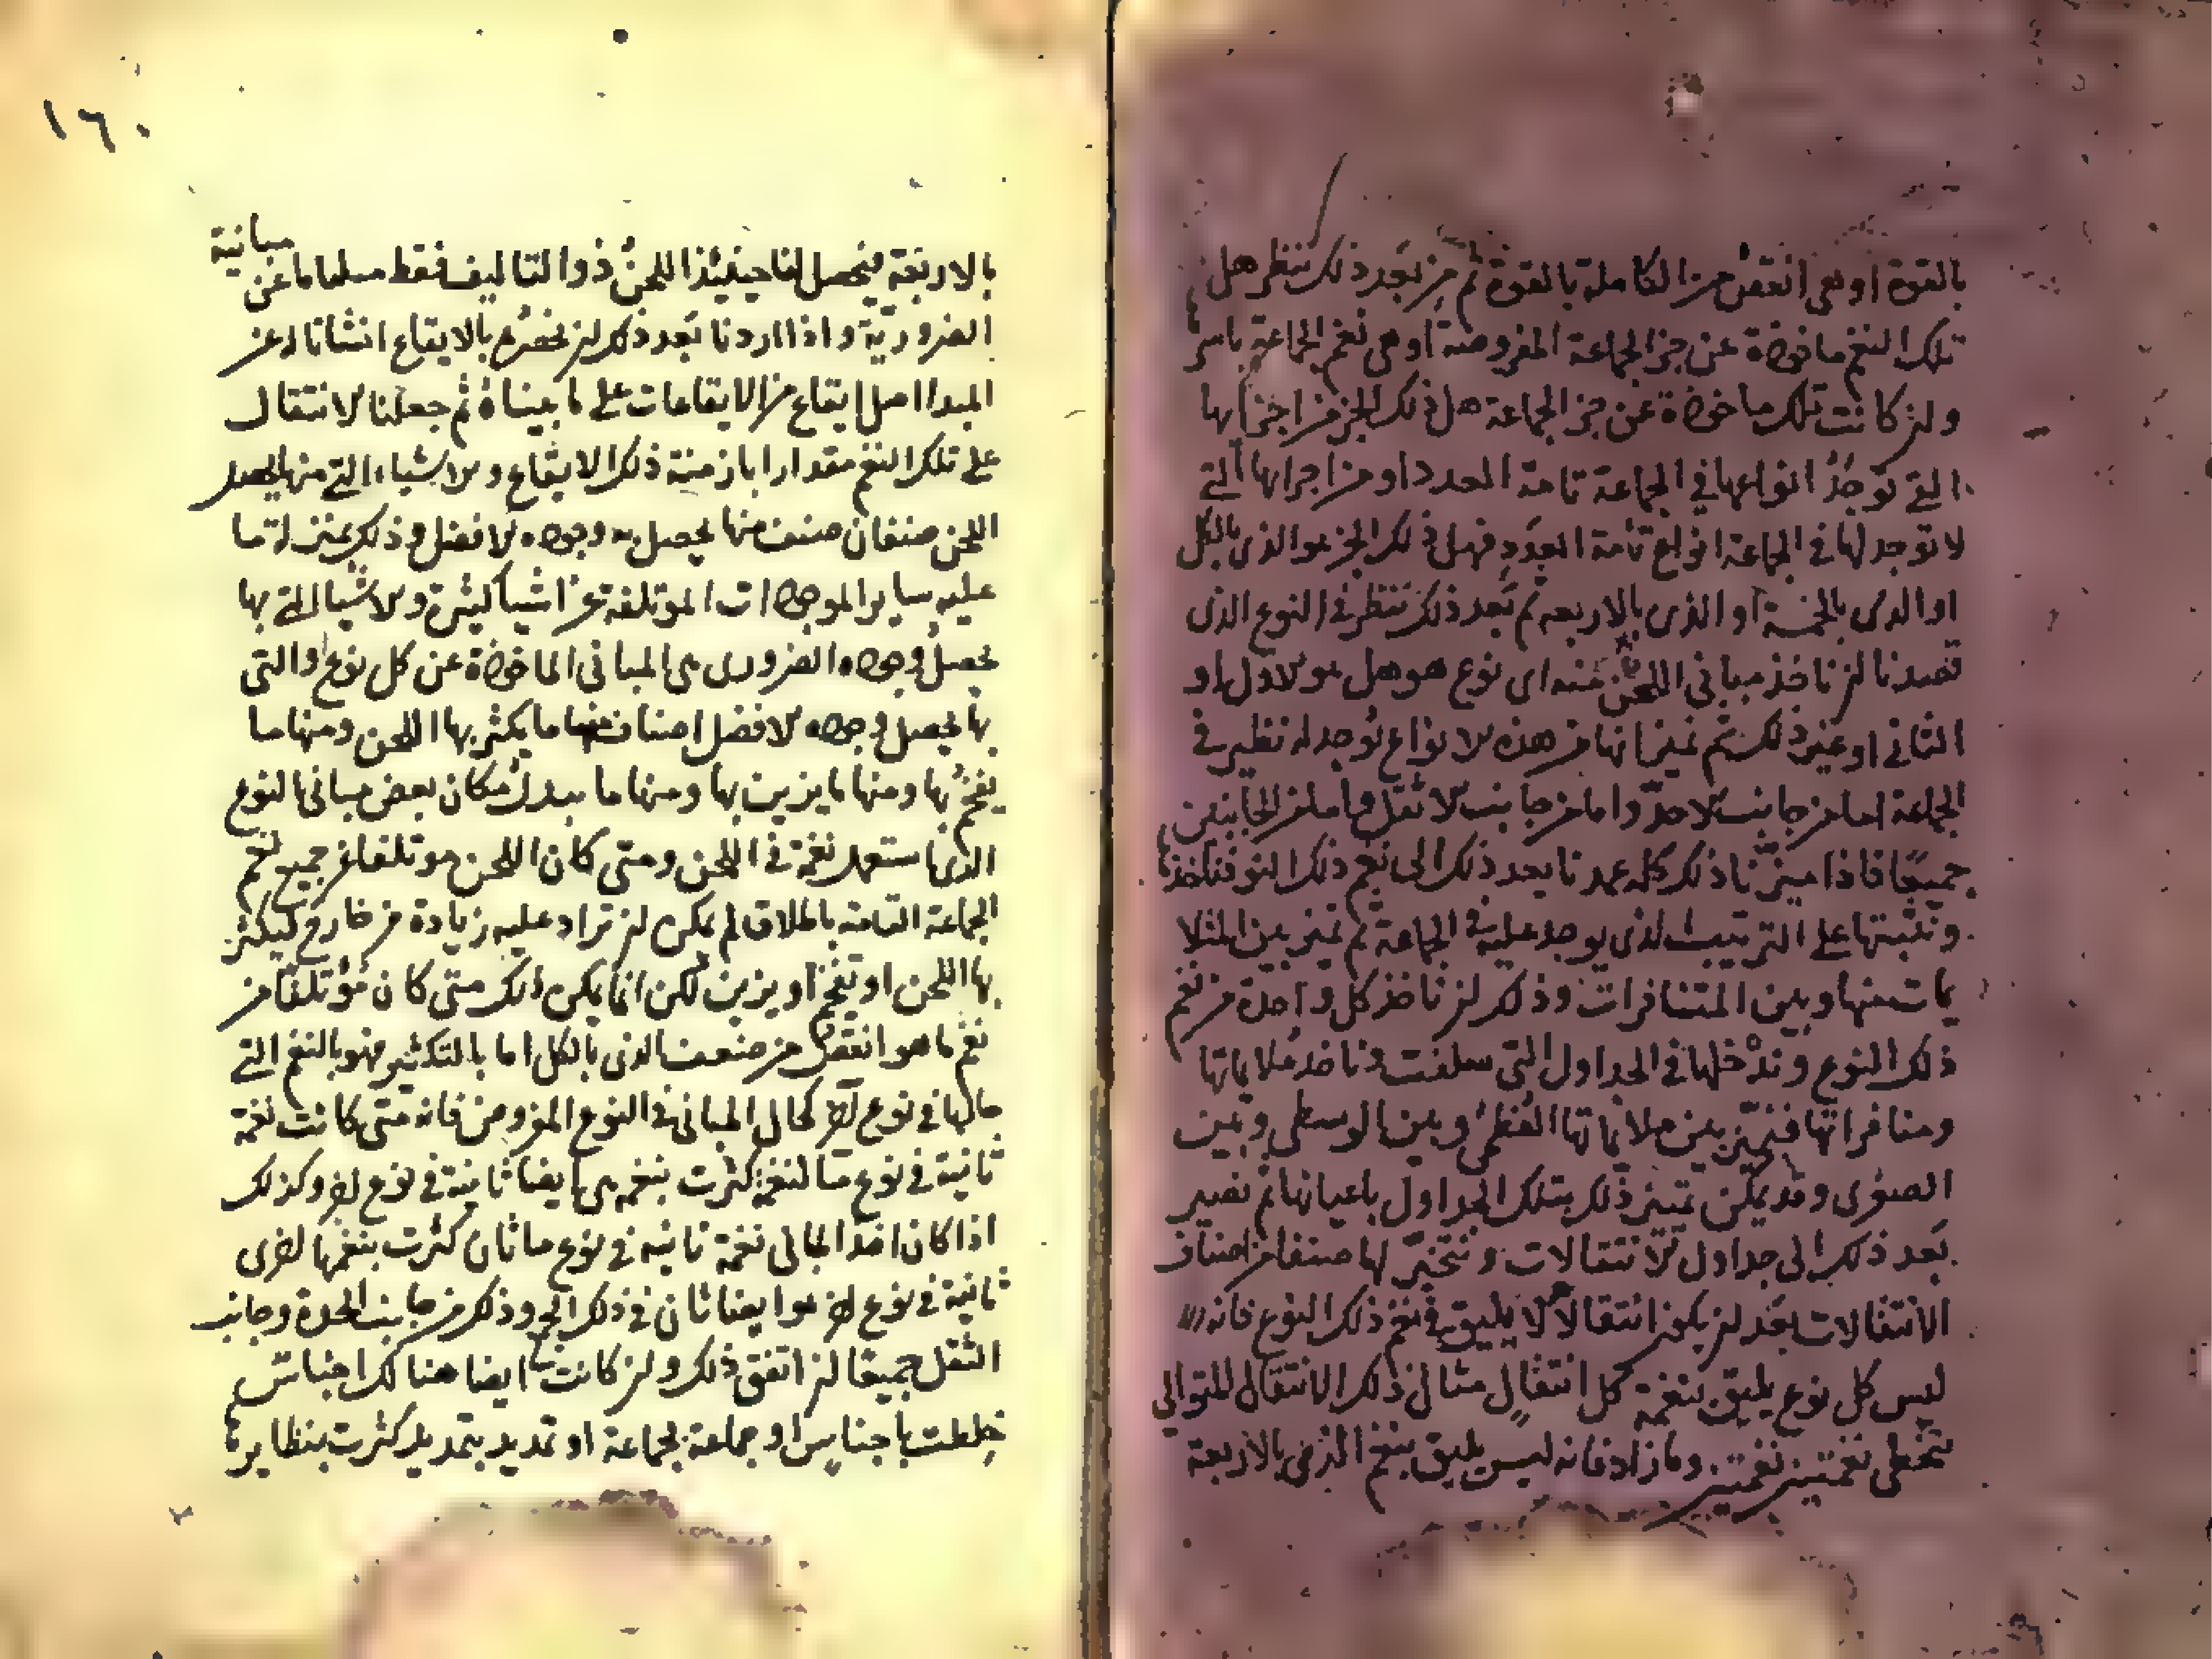 بالقوة او هى انقص من الكاملة بالقوة ثم من بعد ذلك ننظر هل
تلك النغم ماخوذة عن جزء الجماعة المفروضة او هى نغم الجماعة باسرها
ولن كانت تلك ماخوذة عن جز الجماعة هل ذلك الجز من اجزايها
التى توجد انواعها فى الجماعة تامة العدد او من اجزايها التى
لا توجد لها فى الجماعة انواع تامة العدد فهل ذلك الجز هو الذى بالكل
او الذى بالخمسة او الذى بالاربعه ثم بعد ذلك ننظر فى النوع الذى
قصدنا لن ناخذ مبانى اللحن منه اى نوع هو هل هو الاول او
الثانى او غير ذلك ثم نميز ايها من هذه الانواع توجد له نظير فى
الجماعة اما من جانب الاحد واما من جانب الاثقل واما من الجانبين
جميعا فاذا ميزنا ذلك كله عمدنا بعد ذلك الى نغم ذلك النوع فناخذها
ونثبتها على الترتيب الذى يوجد عليه فى الجماعة ثم نميز بين المتلا
يمات منها وبين المتنافرات وذلك لن ناخذ كل واحدة من نغم
ذلك النوع وندخلها فى الجداول التى سلفت فناخذ ملايماتها
ومنافراتها فنميز بين ملايماتها العظمى وبين الوسطى وبين
الصغرى وقد يمكن تمييز ذلك بتلك الجداول باعيانها ثم نصير
بعد ذلك الى جداول الانتقالات ونتخير لها صنفا من اصناف
الانتقالات بعد لن يكون انتقالا يليق فى نغم ذلك النوع فانه
ليس كل نوع يليق بنغمه كل انتقال مثال ذلك الانتقال المتوالى
بتخطى نغمتين نغمتين وما زاد فانه ليس يليق بنغم الذى بالاربعة
١٦٠
بالاربعة فيحصل لنا حينيذ اللحن ذو التاليف فقط مسلما ما عن مبانية
الضرورية واذا اردنا بعد ذلك لن نخصه بالايقاع انشانا له عن
المبدا اصل ايقاع من الايقاعات على ما بيناه ثم جعلنا الانتقال
على تلك النغم مقدارا بازمنة ذلك الايقاع والاشياء التى منها يحصل
اللحن صنفان صنف منها يحصل به وجوده الافضل وذلك بمنزلة ما
عليه ساير الموجودات الموتلفة عن اشيا كثيرة والاشيا التى بها
يحصل وجوده الضرورى هى المبانى الماخوذة عن كل نوع والتى
بها يحصل وجوده الافضل اصناف منها ما يكثر بها اللحن ومنها ما
يفخم بها ومنها ما يزين بها ومنها ما يبدل مكان بعض مبانى النوع
الذى استعمل نغمه فى اللحن ومتى كان اللحن موتلفا من جميع نغم
الجماعة التامة باطلاق لم يمكن لن تزاد عليه زيادة من خارج ليكثر
بها اللحن او يفخم او يزين لكن انما يمكن ذلك متى كان مؤتلفا من
نغم ما هو انقص من ضعف الذى بالكل اما بالتكثير فهو بالنغم التى
حالها فى نوع اخر كحال المبانى فى النوع المفروض فانه متى كانت نغمة
ثانية فى نوع ما لنغم كثرت بنغمه هى ايضا ثانية فى نوع اخر وكذلك
اذا كان اخذ المبانى نغمة ثانيه فى نوع ما ثان كثرت بنغمها اخرى
ثانية فى نوع اخر هو ايضا ثان فى ذلك الجز وذلك من جانب الحدة وجانب
الثقل جميعا لن اتفق ذلك ولن كانت ايضا هنالك اجناس
خلطت باجناس او جماعة بجماعة او تمديد بتمديد كثرت بنظايرها